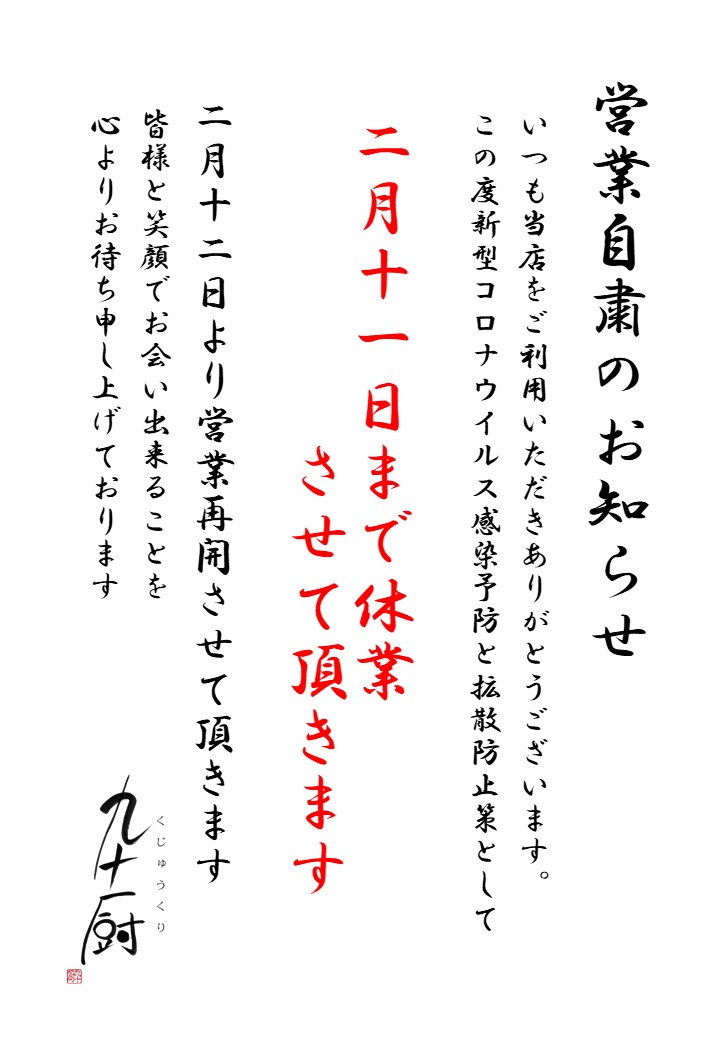 営業自粛のお知らせ
いつも当店をご利用いただきありがとうございます。
この度新型コロナウイルス感染予防と拡散防止策として
二月十一日まで休業
させて頂きます
二月十二日より営業再開させて頂きます
皆様と笑顔でお会い出来ることを
心よりお待ち申し上げております
くじゅうくり
九十厨